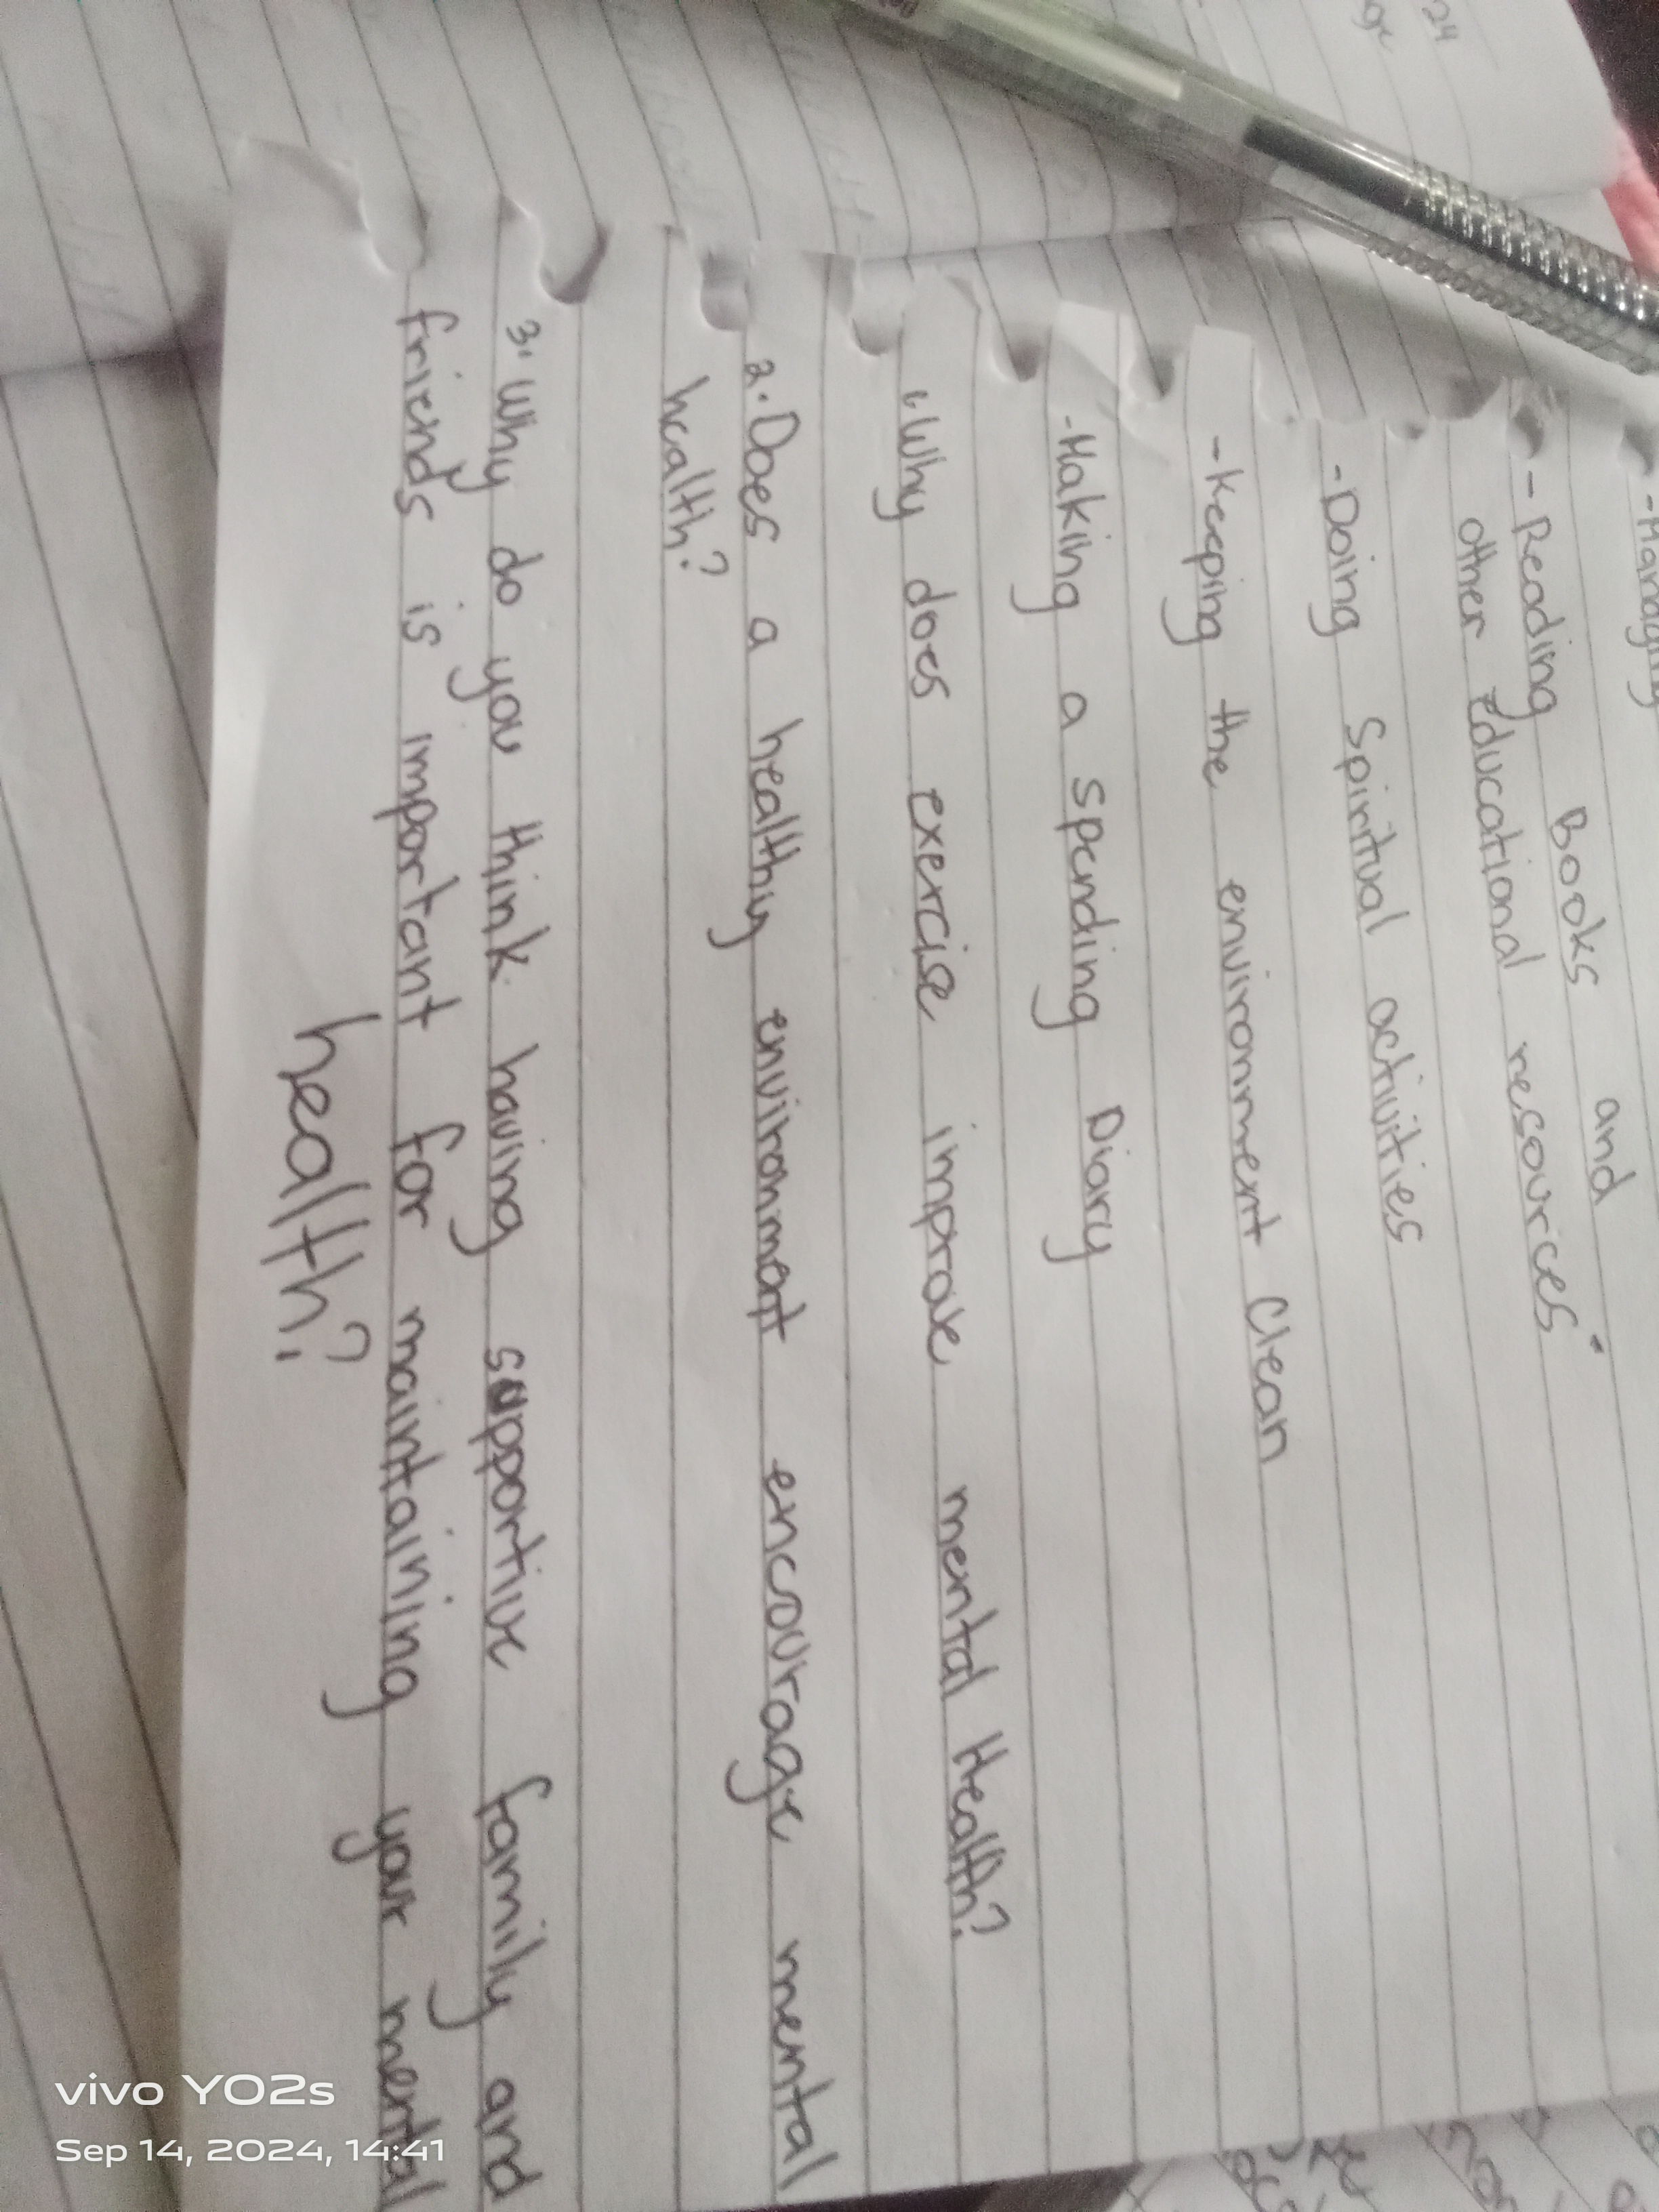 -Managing
- Reading Books and
other Educational resources
-Doing Spiritual activities
-Keeping the environment Clean
-Making a spending Diary
1. Why does exercise improve mental Health?
2. Does a healthy environment encourage mental
health?
3. Why do you think having supportive family and
friends is important for maintaining your mental
health?
24
vivo Y02s
Sep 14, 2024, 14:41